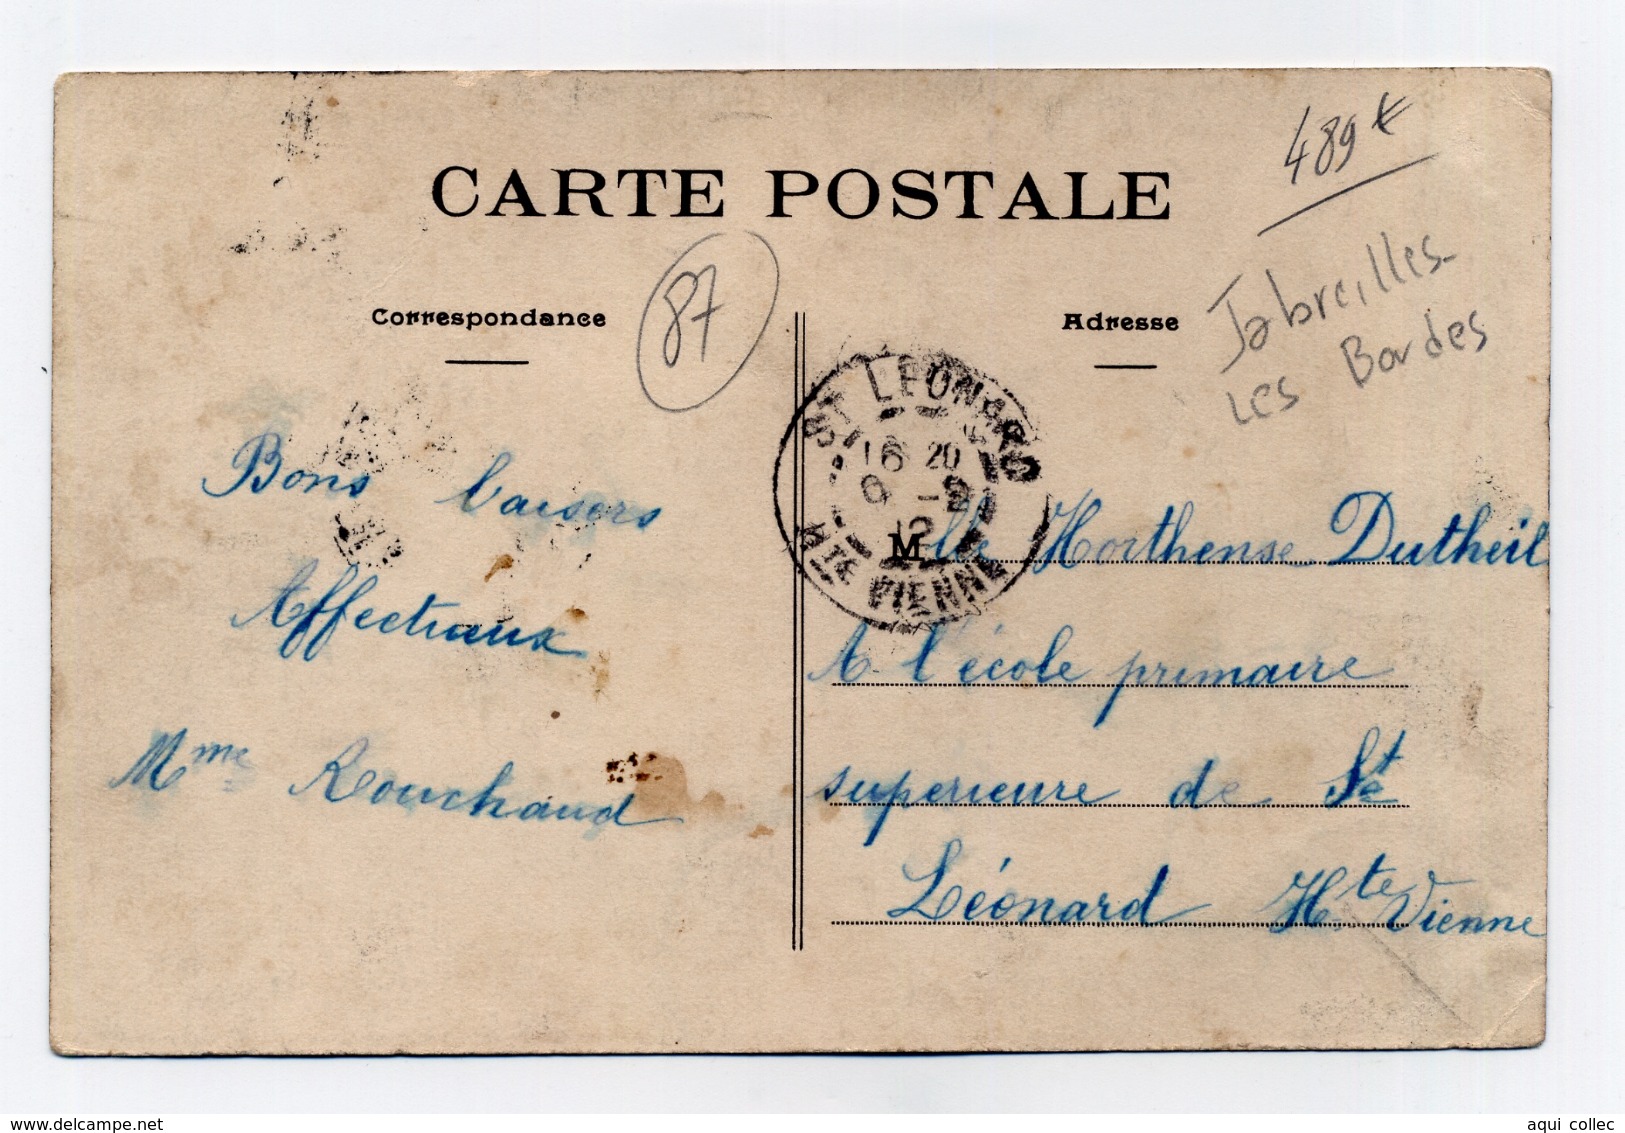 CARTE POSTALE
489 €
Jabreilles
Les Bordes
Correspondance
87
Adresse
ST LEONARD
16 20
9 -2
12
HTE VIENNE
Bons baisers
Affectueux
Mme Rouchaud
Melle Horthense Dutheil
A l'école primaire
superieure de St
Léonard Hte Vienne
www.delcampe.net
aqui collec